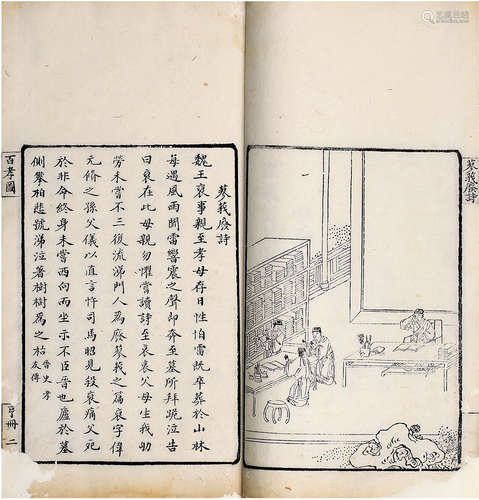 蓼莪廢詩
蓼莪廢詩
魏王裒事親至孝母存日性怕雷既卒葬於山林
每遇風雨聞雷響震之聲即奔至墓所拜跪泣告
曰裒在此母親勿懼嘗讀詩至哀哀父母生我劬
勞未嘗不三復流涕門人為廢蓼莪之篇裒字偉
元脩之孫父儀以直言忤司馬昭見殺裒痛父死
於非命終身未嘗西向而坐示不臣晉也廬於墓
側攀柏悲號涕泣著樹樹為之枯晉史孝友傳
百孝圖
亨冊 二